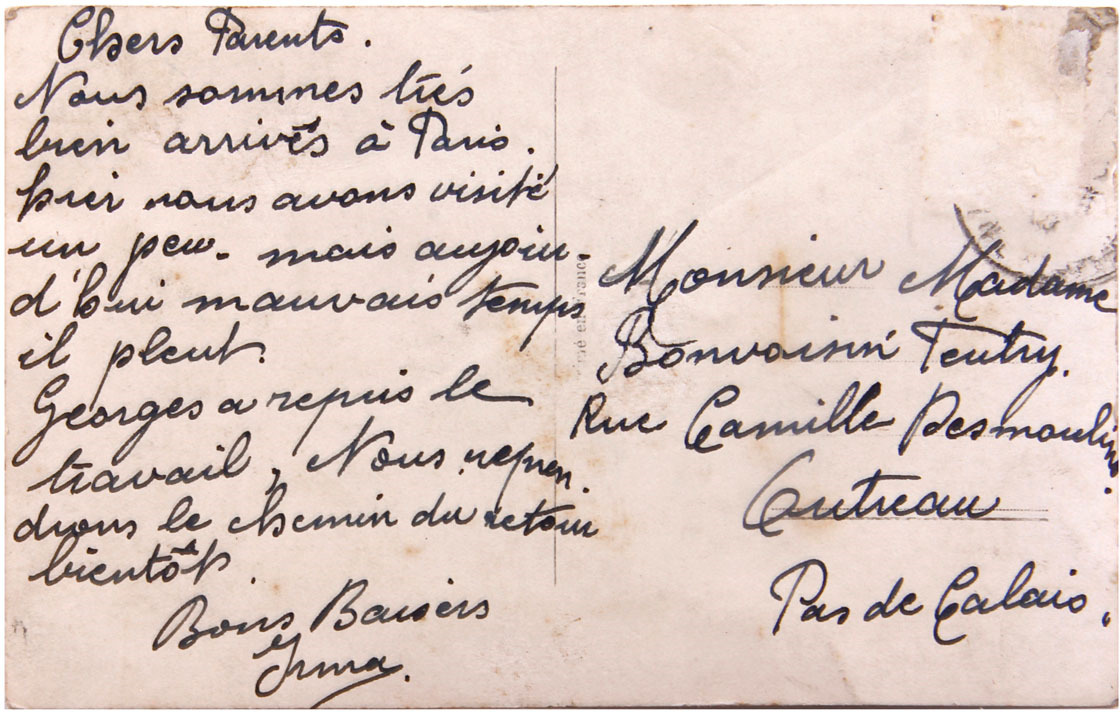 Chers Parents.
Nous sommes très
bien arrivés à Paris.
hier nous avons visité
un peu. mais aujour-
d'hui mauvais temps
il pleut.
Georges a repris le
travail, Nous repren
drons le chemin du retour
bientôt
Bons Baisers
Irma.
Monsieur Madame
Bonvoisin Teutry.
Rue Camille Desmoulins.
Outreau
Pas de Calais.
en France